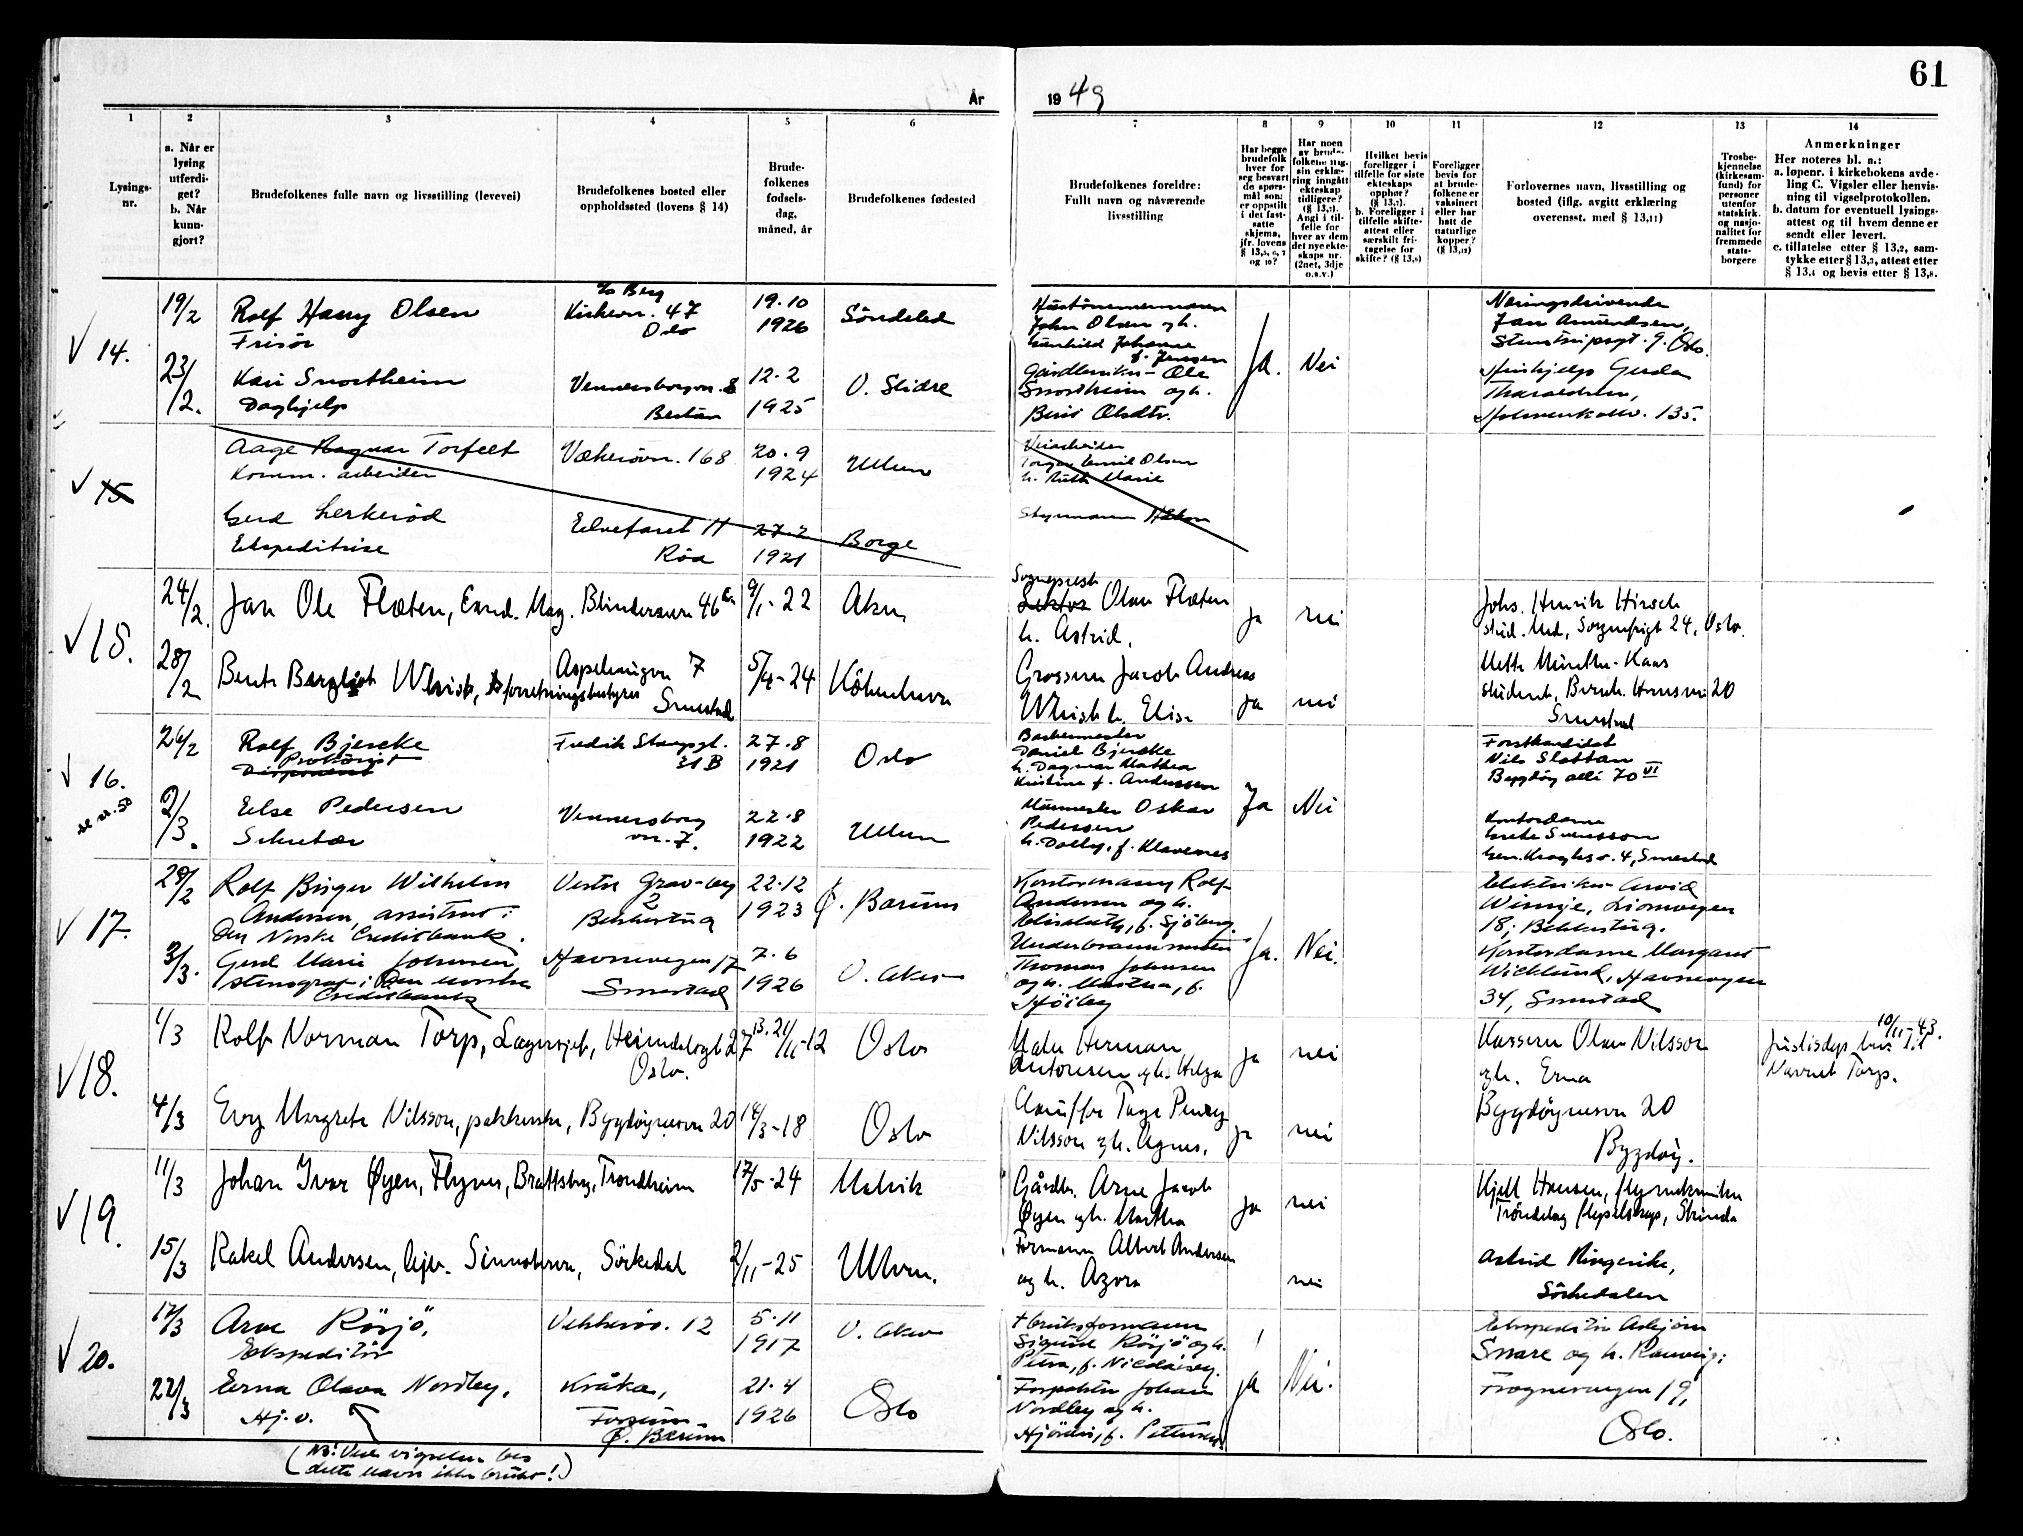 61
År
19 49
1
2
3
4
5
6
7
8
9
10
11
12
13
14
Lysings-
nr.
a. Når er
lysing
utferdi-
get?
b. Når
kunn-
gjort?
Brudefolkenes fulle navn og livsstilling (levevei)
Brudefolkenes bosted eller
oppholdssted (lovens § 14)
Brude-
folkenes
fødsels-
dag,
måned, år
Brudefolkenes fødested
Brudefolkenes foreldre:
Fullt navn og nåværende
livsstilling
Har begge
brudefolk
hver for
seg besvart
de spørs-
mål som
er oppstilt
i det fast-
satte
skjema,
jfr. lovens
Har noen
av brude-
folkene
sin erklæ-
ring inngått
ekteskap
tidligere?
(§ 13,7).
Angi i til-
felle for
hver av dem
det nye ekte-
skaps nr.
(2net, 3dje
o.s.v.)
Hvilket bevis
foreligger i
tilfelle for siste
ekteskaps
opphør?
b. Foreligger i
tilfelle skifte-
attest eller
særskilt fri-
tagelse for
skifte?
Foreligger
bevis for
at brude-
folkene er
vaksinert
eller har
hatt de
naturlige
kopper?
Forlovernes navn, livsstilling og
bosted (iflg. avgitt erklæring
overensst. med § 13,11)
Trosbe-
kjennelse
(kirkesam-
fund) for
personer
utenfor
statskirk.
og nasjo-
nalitet for
fremmede
stats-
borgere
Anmerkninger
Her noteres bl. a.:
a. løpenr. i kirkebokens avde-
ling C. Vigsler eller henvis-
ning til vigselprotokollen.
b. datum for eventuell lysings-
attest og til hvem denne er
sendt eller levert.
c. tillatelse etter § 13,2, sam-
tykke etter § 13,3, attest etter
§ 13,4 og bevis etter § 13,8.
14.
19/2
Rolf Harry Olsen
Frisör
c/o Berg
Kirkevn. 47
Oslo
19.10
1926
Söndeled
John Olsen og h.
Gunhild Johanne
f. Jensen
Ja.
Nei
Næringsdrivende
Jan Amundsen,
Stenstrupsgt. 9. Oslo.
23/2.
Kari Snortheim
Daghjelp
Vennersborgvn. 8
Bestun
12.2
1925
V. Slidre
Gårdbruker Ole
Snortheim og h.
Berit Olsdtr.
Hushjelp Gerda
Tharaldsen,
Holmenkollv. 135.
15
Aage Ragnar Torfelt
Komm. arbeider
Vækerövn. 168
20.9
1924
Ullern
Veiarbeider
Torger Emil Olsen
h. Ruth Marie
Gerd Lerkeröd
Ekspeditrise
Elvefaret 11
Röa
27.2
1921
Borge
Styrmann Håkon
15.
24/2.
Jan Ole Flæten, Cand. Mag.
Blindernvn 46
9/1-22
Aker
Sogneprest
Lektor Olav Flæten
h. Astrid.
Ja
nei
Johs. Henrik Hirsch
stud. Med, Sorgenfrigt 24, Oslo.
28/2
7
Smestad
5/4-24
Köbenhavn
Grosserer Jacob Andreas
h. Elise
Ja
nei
20
Smestad
16.
se nr. 50
26/2
Rolf Bjercke
Prokurist
Disponent
Fredrik Stangsgt.
31 B
27.8
1921
Oslo
Daniel Bjercke
h. Dagmar Mathea
Kristine f. Andersen
Ja
Nei
Forstkandidat
Nils Slattan
Bygdöy allé 70 VI
2/3.
Else Pedersen
Sekretær
Vennersborg
vn. 7.
22.8
1922
Ullern
Murmester Oskar
Pedersen
h. Dolly, f. Klavenes
Kontordame
Grete Svensson
Gen. Kroghs v. 4, Smestad
17.
28/2
Rolf Birger Wilhelm
Andersen, assistent i
Den Norske Creditbank.
Vestre Grav-vey
2
Bekkestua
22.12
1923
Ö. Bærum
Kontormann Rolf
Andersen og h.
Elisabeth, f. Sjöberg.
Ja.
Nei.
Elektriker Arvid
18; Bekkestua.
3/3.
Gerd Marie Johnsen
stenograf i Den norske
Creditbank
Havnevegen 17
Smestad
7.6
1926
V. Aker
Underbrannmester
Thomas Johnsen
og h. Martha, f.
Höiby
Kontordame Margaret
Wicklund, Havnevegen
34, Smestad
18.
1/3
Rolf Norman Torp, Lagersjef,
Heimdalsgt 27
Oslo.
21/11-12
Oslo
Maler Herman
Antonsen og h. Helga
Ja
nei
Kasserer Olav Nilsson
og h. Erna
Bygdöynesvn 20
Bygdöy.
10/11-43.
Justisdep. bev. til
Navnet Torp.
4/3
Evy Margrete Nilsson, pakkerske,
Bygdöynesvn 20
14/3-18
Oslo
Nilsson og h. Agnes.
Ja
nei
19.
11/3
Johan Ivar Øyen, Flyver,
Brattsbg. Trondheim
17/5-24
Malvik
Gårdbr. Arne Jacob
Øyen og h. Martha
Ja
nei
Kjell Hansen, flymekaniker
Tröndelag flyselskap, Strinda
15/3
Rakel Andersen, hjv.
Sörkedal
2/11-25
Ullern.
Formann Albert Andersen
og h. Azora
nei
Astrid Ringerike,
Sörkedalen
20.
17/3
Arve Rörjö,
Ekspeditör
Vekkeröv. 12
5.11
1917
V. Aker
Sigurd Rörjö og h.
Petra, f. Nicolaisen
ja
Nei.
Ekspeditör Asbjörn
Snare og h. Ranveig;
Frognervegen 19,
Oslo.
22/3
Erna Olava Nordby,
Hj. v.
Kråka,
Fossum
Ö. Bærum
21.4
1926
Oslo
Forpakter Johan
Nordby og h.
Hjördis, f. Pettersen
(NB: Ved vigselen bes
dette navn ikke brukt!)